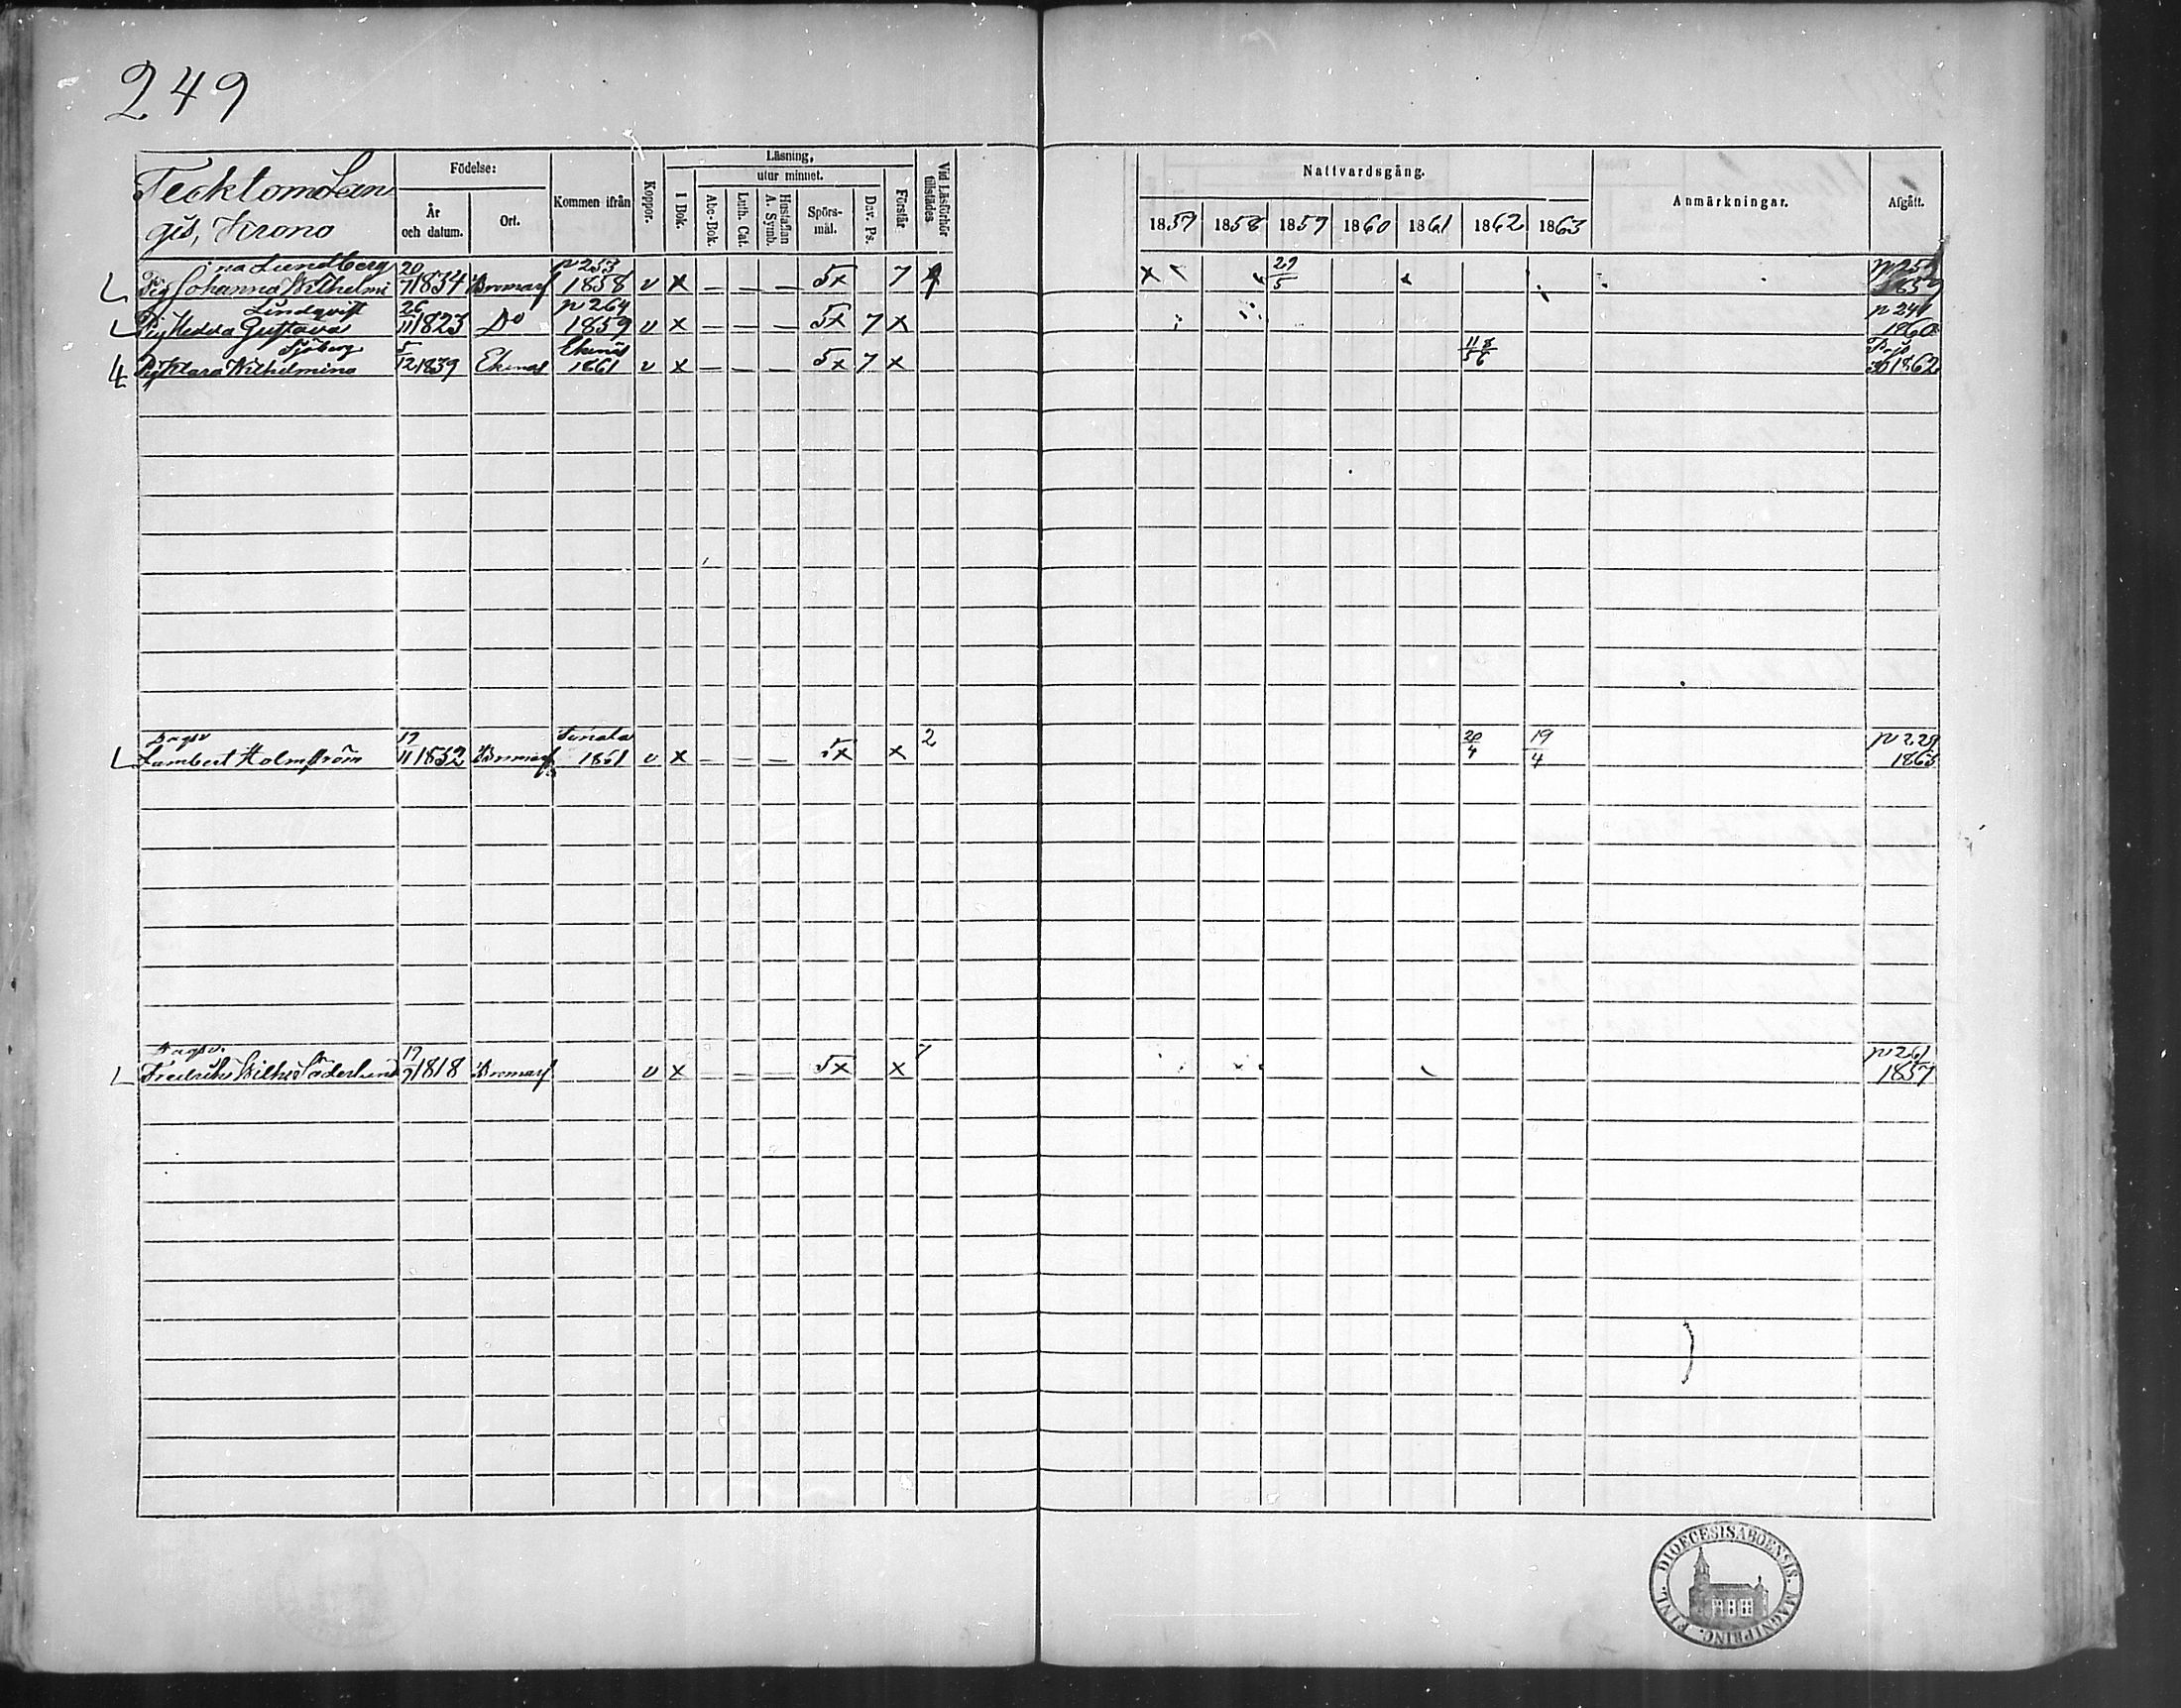 249
Läsning,
Födelse:
utur minnet.
Nattvardsgång.
Kommen ifrån
Koppor.
I Bok.
Abc-Bok.
Luth. Cat.
Hustaflan A. Symb.
Spörs-
mål.
Dav. Ps.
Förstår
Vid Läsförhör tillstädes.
År
och datum.
Ort.
Anmärkningar.
Afgått.
gis, Krono
1857 1858 1859 1860 1861 1862 1863
na Lundberg 20 p 253 29
Pig Johanna Wilhelmi 7 1834 Bromarf 1858 v x — — — 5x 7 x 5
Lindqvist 26 p 264 p 241
Pig Hedda Gustava 11 1823 Do 1859 v x — — — 5x 7 x 1860
Sjöberg 5 Ekenäs 11 8
Pig Klara Wilhelmina 12 1839 Ekenäs 1861 v x — — — 5x 7 x 5 6 1862
17 2 20 19 p 229
Lambert Holmström 11 1832 Bromarf 1861 v x — — — 5x x 4 4 1863
17 7 p 261
Fredrika Wilhel Söderlund 7 1818 Bromarf v x — — — 5x x 1857
DIOECESIS ABOENSIS. MAGNI PRINC. FINL.